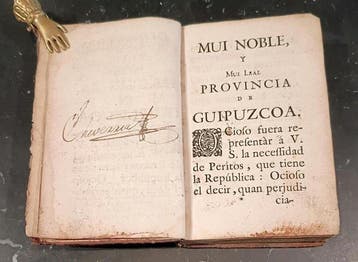 MUI NOBLE,
Y
MUI LEAL
PROVINCIA
DE
GUIPUZCOA.
OCioso fuera re-
presentàr à V.
S. la necessidad
de Peritos, que tiene
la República: Ocioso
el decir, quan perjudi-
cia-